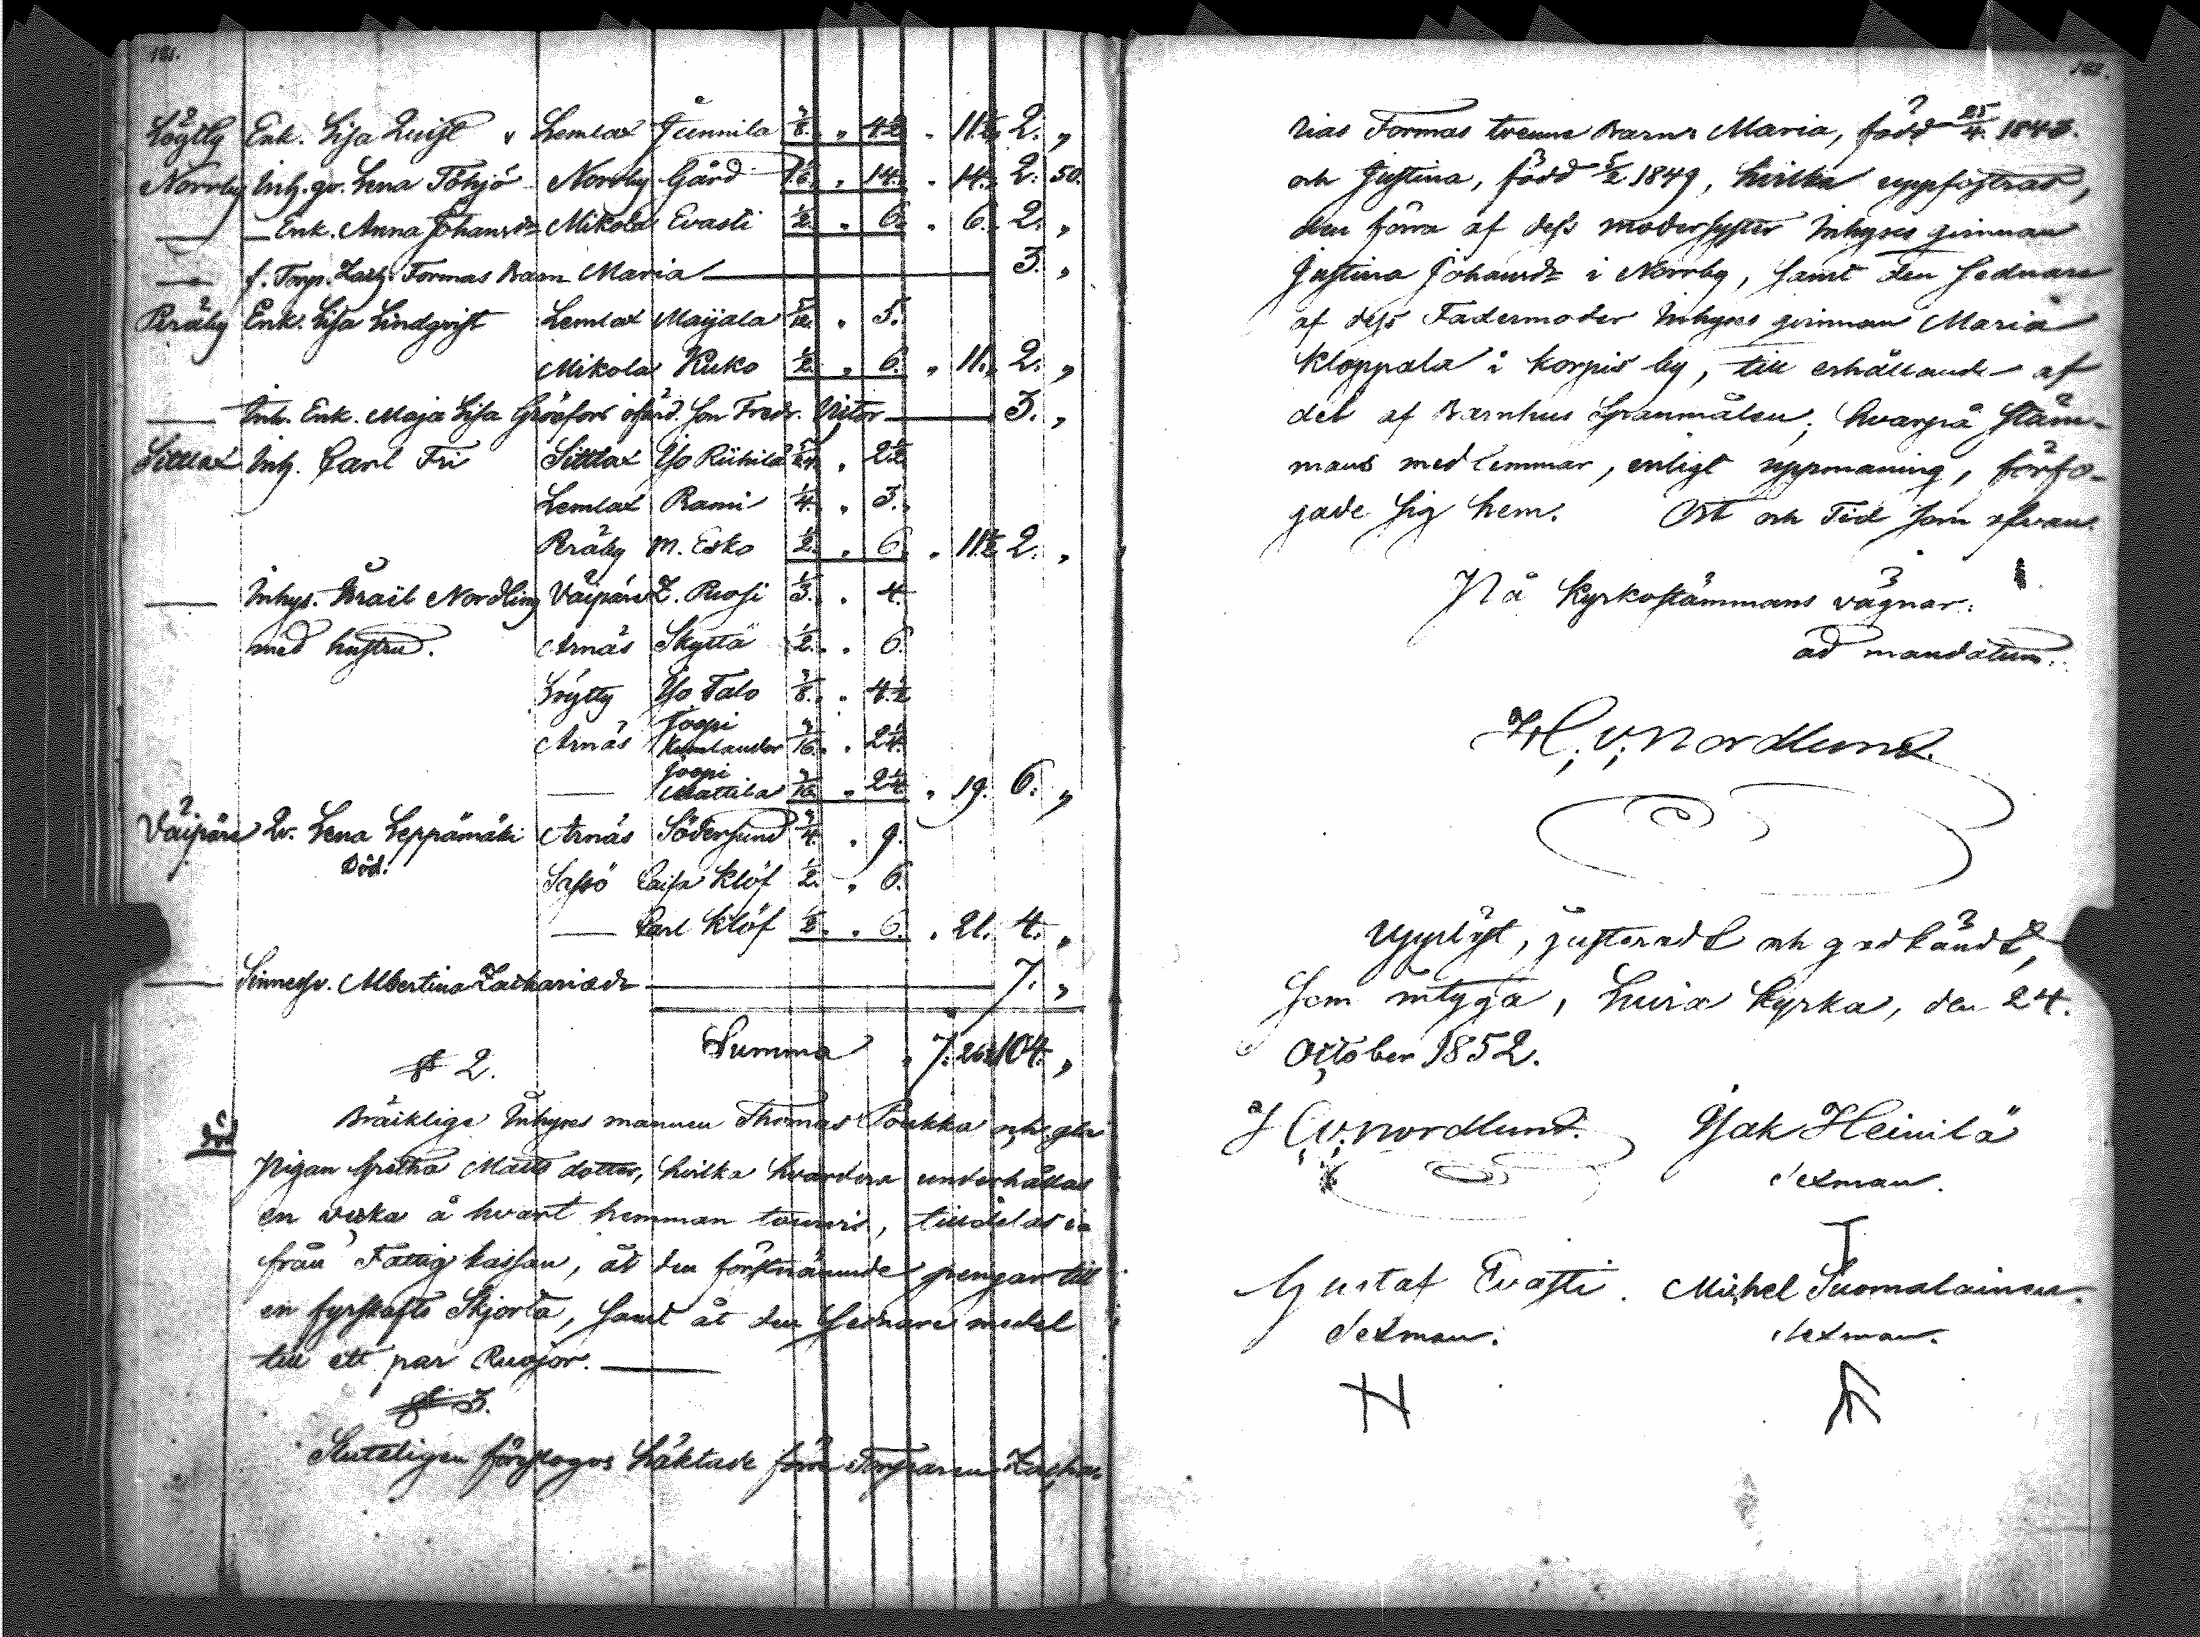 181.
Löytty Enk. Lisa Quist " Lemlax Junnila 3/8. " 4 1/2 " 11 1/2. 2. "
Norrby Inh. qv. Lena Töhjö Norrby Gård " 14. " 14. 2. 50.
— — Enk. Anna Johansdr Mikola Evasti 1/2. " 6. " 6. 2. "
— f. Torp. Zach. Formas Barn Maria — 3. "
Peräby Enk. Lisa Lindqvist Lemlax Maijala 5/12. " 5.
Mikola Kuko 1/2. " 6. " 11. 2. "
— Inh. Enk. Maja Lisa Grösfors ofärd. Son Fredr. Victor — 3. "
Sittlax Inh. Carl Fri Sittlax Yso Riihilä 5/24. " 2 1/2
Lemlax Rami 1/4. " 3.
Peräby M. Esko 1/2. " 6. " 11 1/2. 2. "
— Inhys. Israel Nordling Väipäre Z. Ruosi 1/3. " 4.
med hustru. Arnäs Skyttä 1/2. " 6.
Löytty Yso Talo 3/8. " 4 1/2
Joopi
Arnäs Kumlander 3/16. " 2 1/4.
Joopi
— Mattila 3/16. " 2 1/4 " 19. 6. "
Väipäre Qv. Lena Leppämäki Arnäs Södersund 3/4. " 9.
Död. Sassö Caisa Klöf 1/2. " 6.
— Carl Klöf 1/2. " 6. " 21. 4. "
— Sinnessv. Albertina Zachariædr — 7. "
Summa " 7. 104. "
§ 2.
Bräcklige Inhyses mannen Thomas Poukka och
död
Pigan Gretha Matts dotter, hvilka hvardera underhållas
en vecka å hvart hemman tourvis, tilldelades
från Fattig kassan, åt den förstnämnde pengar till
en fyrskafts Skjorta, samt åt den sednare medel
till ett par Ruojor. —
§ 3.
Sluteligen föreslogos häktade förre Torparen Zacha-
182.
rias Formas trenne Barn: Maria, född 25/4. 1843.
och Justina, född 5/2 1849, hvilka uppfostras,
den förra af dess modersyster Inhyses qvinnan
Justina Johansdr i Norrby, samt den sednare
af dess Fadermoder Inhyses qvinnan Maria
Kloppala i Korpis by, till erhållande af
del af Barnhus Spannmålen; hvarpå Stäm-
mans medlemmar, enligt uppmaning, förfo-
gade sig hem. Ort och Tid som ofvan.
På Kyrkostämmans vägnar:
ad mandatum.
H. v. Nordlund.
Uppläst, justeradt och godkändt,
som intyga, Luvia Kyrka, den 24.
October 1852.
H. v. Nordlund. Isak Heinilä
Sexman.
Gustaf Evasti. Michel Suomalainen.
Sexman. Sexman.